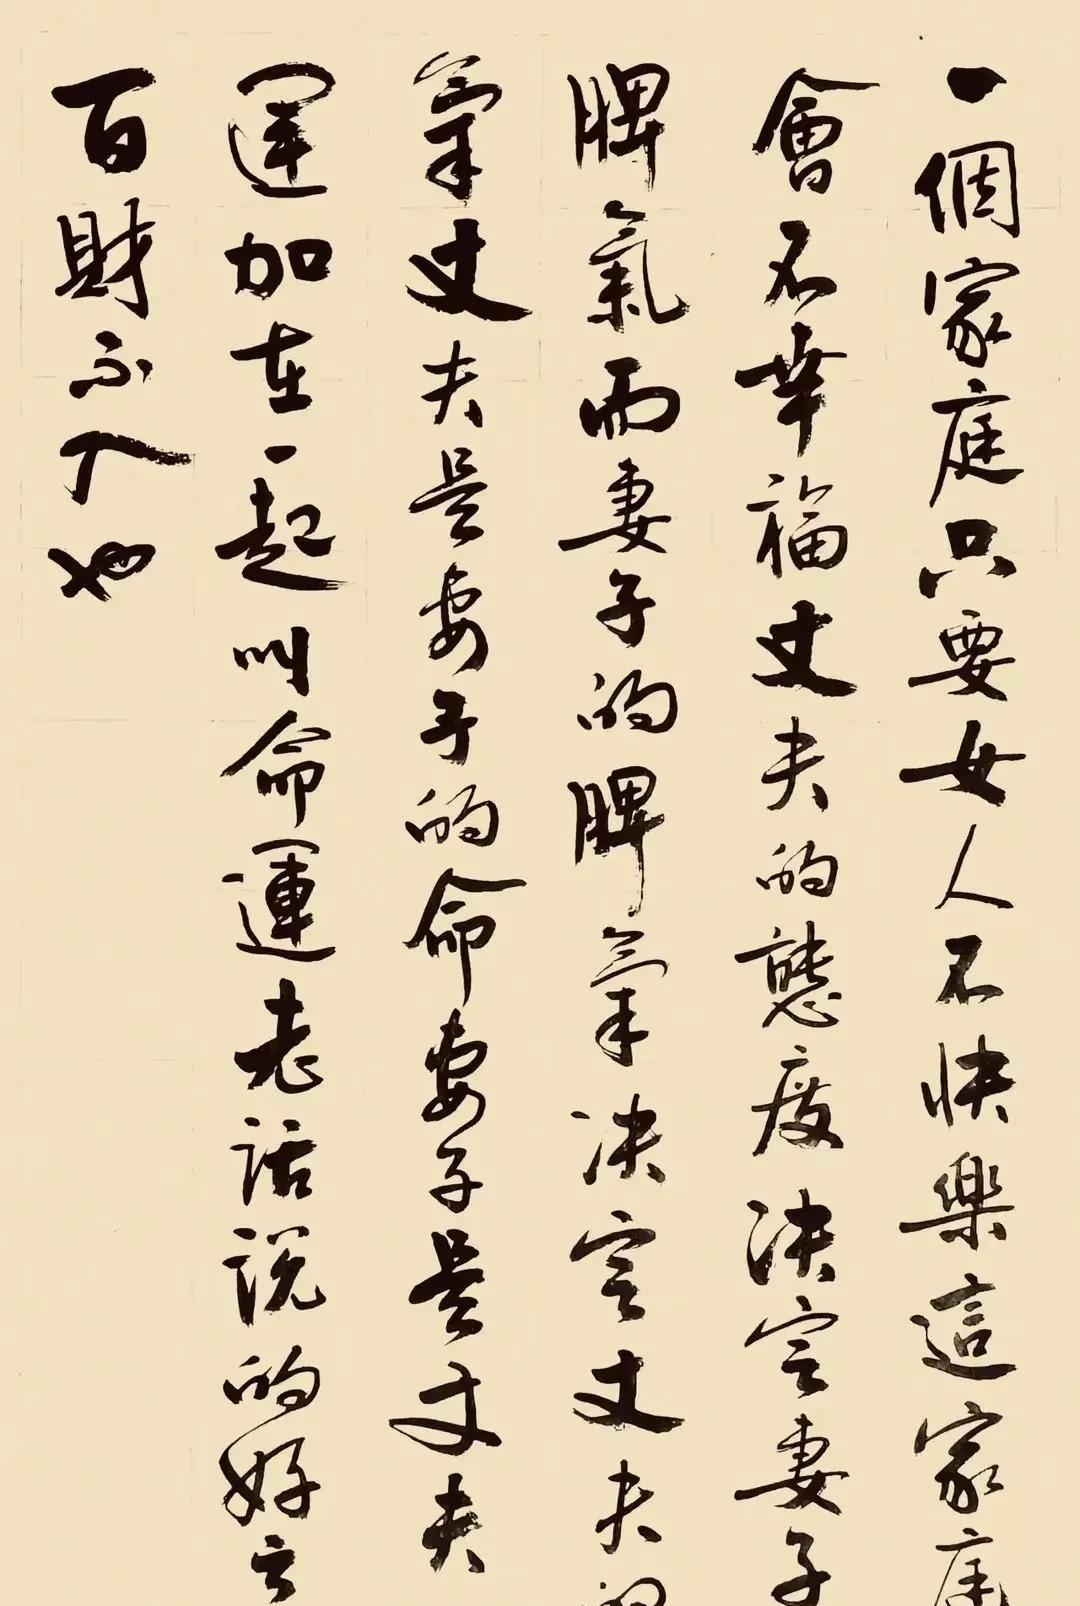 一個家庭只要女人不快樂這家庭
會不幸福丈夫的態度決定妻子
脾氣而妻子的脾氣决定丈夫的
氣丈夫是妻子的命妻子是丈夫
運加在一起叫命運老話說的好
百財不入也